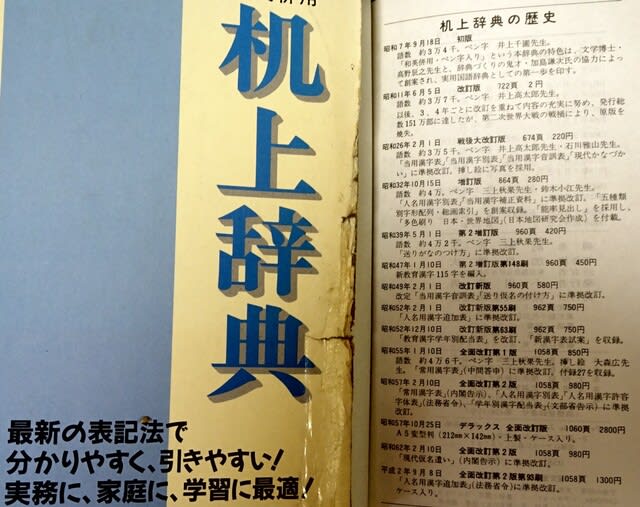 併用
机上辞典
最新の表記法で
分かりやすく、引きやすい!
実務に、家庭に、学習に最適!
机上辞典の歴史
昭和7年9月18日 初版
語数 約3万4千。ペン字 井上千圃先生。
「和英併用・ペン字入り」という本辞典の特色は、文学博士・
高野辰之先生と、辞典づくりの鬼才・加島謙次氏の協力によっ
て創案され、実用国語辞典としての第一歩を印す。
昭和11年6月5日 改訂版 722頁 2円
語数 約3万7千。ペン字 井上高太郎先生。
以後、3、4年ごとに改訂を重ねて内容の充実に努め、発行総
数151万部に達したが、第二次世界大戦の戦禍により、原版を
焼失。
昭和26年2月1日 戦後大改訂版 674頁 220円
語数 約3万5千。ペン字 井上高太郎先生・石川雅山先生。
「当用漢字表」「当用漢字別表」「当用漢字音訓表」「現代かなづか
い」に準拠改訂。挿し絵に写真を採用。
昭和32年10月15日 増訂版 864頁 280円
語数 約4万。ペン字 三上秋果先生・鈴木小江先生。
「人名用漢字別表」「当用漢字補正資料」に準拠改訂。「五種類
別字形配列・総画索引」を創案収録。「能率見出し」を採用し、
「多色刷り 日本・世界地図」(日本地図研究会作成)を付載。
昭和39年5月1日 第2増訂版 960頁 420円
語数 約4万2千。ペン字 三上秋果先生。
「送りがなのつけ方」に準拠改訂。
昭和47年1月10日 第2増訂版第148刷 960頁 450円
新教育漢字115字を編入。
昭和49年2月1日 改訂新版 960頁 580円
改定「当用漢字音訓表」「送り仮名の付け方」に準拠改訂。
昭和52年2月1日 改訂新版第55刷 962頁 750円
「人名用漢字追加表」に準拠改訂。
昭和52年12月10日 改訂新版第63刷 962頁 750円
「教育漢字学年別配当表」を改訂、「新漢字表試案」を収録。
昭和55年1月10日 全面改訂第1版 1058頁 850円
語数 約4万6千。ペン字 三上秋果先生。挿し絵 大森広先
生。「常用漢字表」(中間答申)に準拠改訂。付録27を収録。
昭和57年2月10日 全面改訂第2版 1058頁 980円
「常用漢字表」(内閣告示)、「人名用漢字別表」「人名用漢字許容
字体表」(法務省令)、「学年別漢字配当表」(文部省告示)に準拠
改訂。
昭和57年10月25日 デラックス 全面改訂版 1060頁 2800円
A5変型判(212mm×142mm)・上製・ケース入り。
昭和62年2月10日 全面改訂第2版 1058頁 980円
「現代仮名遣い」(内閣告示)に準拠改訂。
平成2年9月8日 全面改訂第2版第93刷 1058頁 1300円
「人名用漢字追加表」(法務省令)に準拠改訂。
ケース入り。